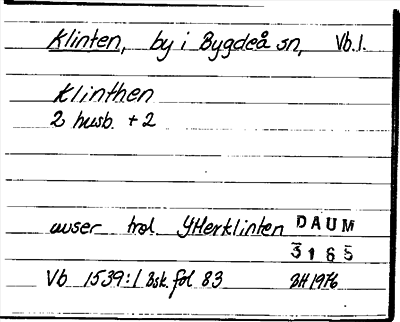 Klinten, by i Bygdeå sn, Vb.l.
Klinthen
2 husb. + 2
avser trol. Ytterklinten DAUM
3165
Vb 1539:1 Bsk. fol 83 BH 1976